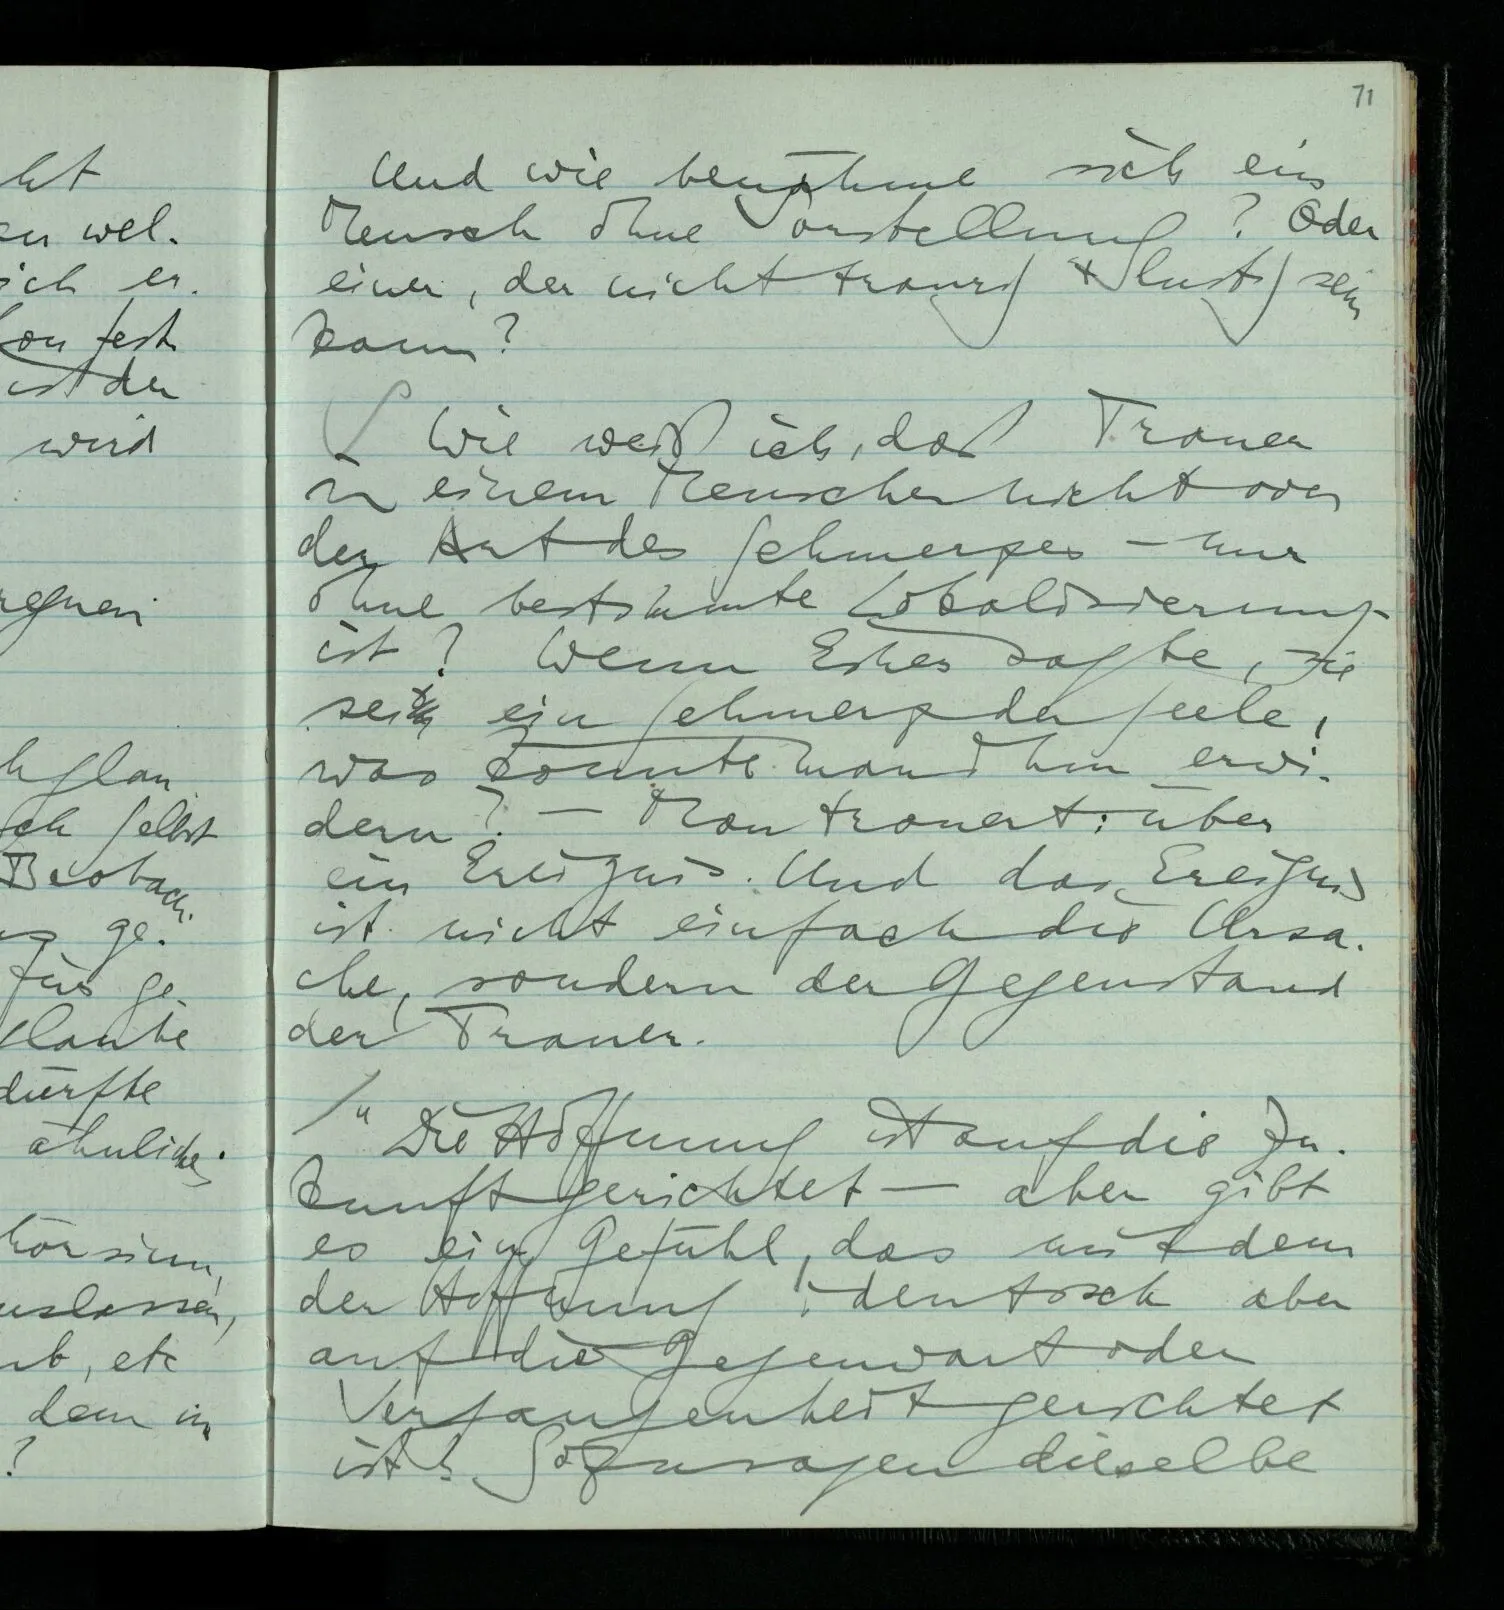 ht
en wel-
ich er-
fest
ist der
wird
regnen
h glau-
ich selbst
Beobach-
ge-
für ge-
glaube
dürfte
ähnliches
uslassen,
ub, etc
dem in
?
71
Und wie benähme sich ein
Mensch ohne Vorstellung? Oder
einer, der nicht traurig & lustig sein
kann?
∫ Wie weiß ich, daß Trauer
in einem Menschen nicht von
der Art des Schmerzes – nur
ohne bestimmte Lokalisierung
ist? Wenn Einer sagte, sie
sei ein Schmerz der Seele,
was könnte man ihm erwi-
dern? – Man trauert: über
ein Ereignis. Und das Ereignis
ist nicht einfach die Ursa-
che, sondern der Gegenstand
der Trauer.
/ " Die Hoffnung ist auf die Zu-
kunft gerichtet – aber gibt
es ein Gefühl, das mit dem
der Hoffnung identisch aber
auf die Gegenwart oder
Vergangenheit gerichtet
ist? Sozusagen dieselbe